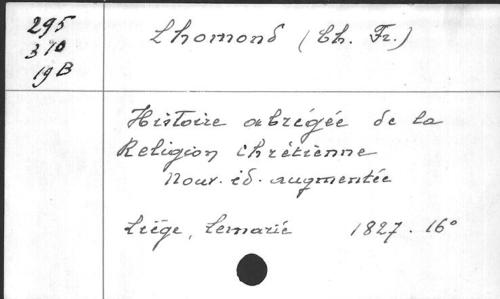 295
310
19 B
Lhomond (Ch. Fr.)
Histoire abrégée de la
Religion chrétienne
Nouv. éd. augmentée
Liége, Lemarié 1827. 16°